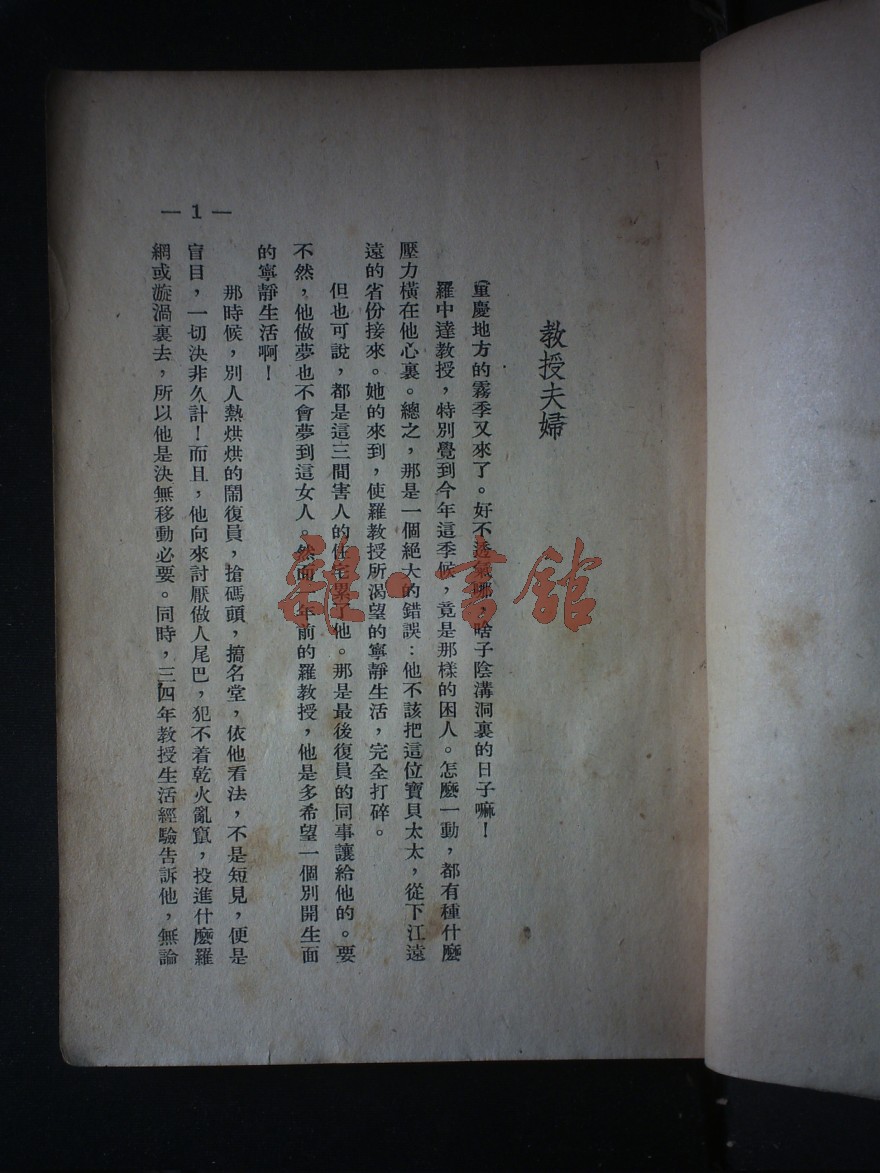 教授夫婦
重慶地方的霧季又來了。好不透氣哪，啥子陰溝洞裏的日子嘛！
羅中達教授，特別覺到今年這季候，竟是那樣的困人。怎麼一動，都有種什麼
壓力橫在他心裏。總之，那是一個絕大的錯誤：他不該把這位寶貝太太，從下江遠
遠的省份接來。她的來到，使羅教授所渴望的寧靜生活，完全打碎。
但也可說，都是這三間害人的住宅累了他。那是最後復員的同事讓給他的。要
不然，他做夢也不會夢到這女人。然而一年前的羅教授，他是多希望一個別開生面
的寧靜生活啊！
那時候，別人熱烘烘的鬧復員，搶碼頭，搞名堂，依他看法，不是短見，便是
盲目，一切決非久計！而且，他向來討厭做人尾巴，犯不着乾火亂竄，投進什麼羅
網或漩渦裏去，所以他是決無移動必要。同時，三四年教授生活經驗告訴他，無論
— 1 —
雜·書館